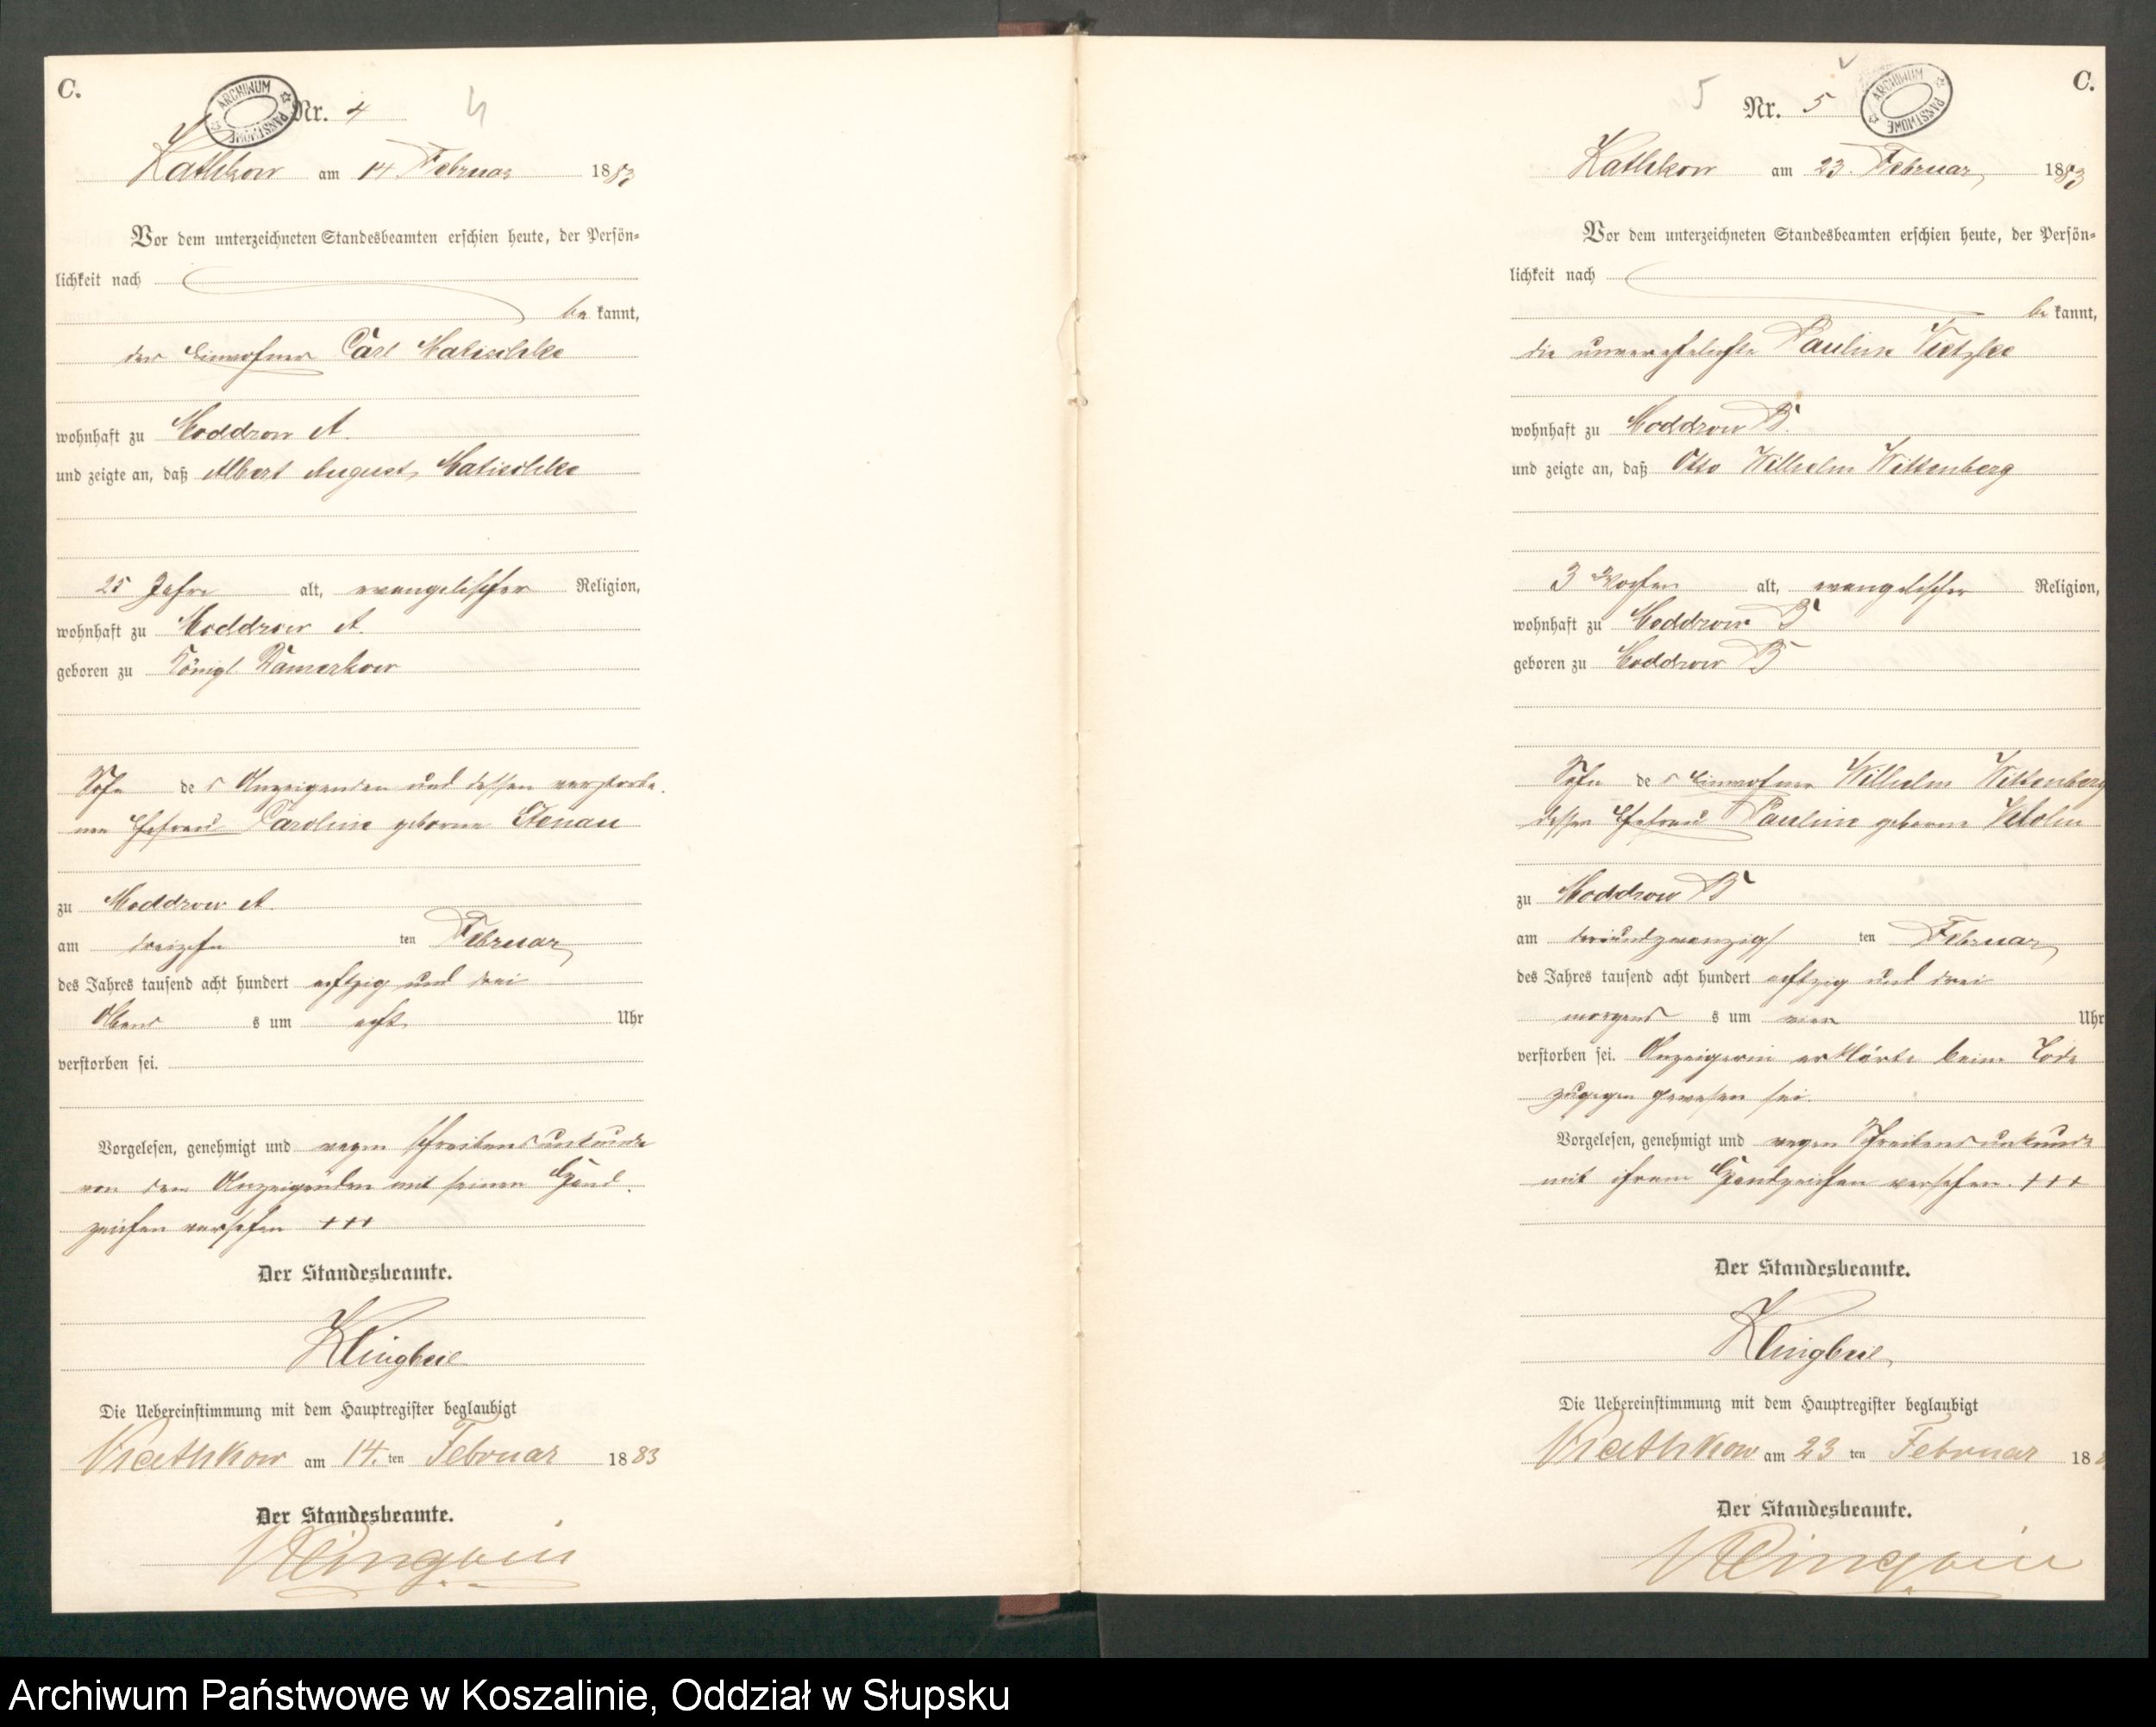 C.
ARCHIWUM PAŃSTWOWE
Nr. 4
4
Kathkow am 14 Februar 1883
Vor dem unterzeichneten Standesbeamten erschien heute, der Persön-
lichkeit nach
be kannt,
der Einwohner Carl
wohnhaft zu Moddrow A.
und zeigte an, daß Albert August
25 Jahre alt, evangelischer Religion,
wohnhaft zu Moddrow A.
geboren zu Königl Damerkow
Sohn des Anzeigenden und dessen verstorbe-
nen Ehefrau Caroline geborne
zu Moddrow A.
am dreizehn ten Februar
des Jahres tausend acht hundert achtzig und drei
Abend s um acht Uhr
verstorben sei.
Vorgelesen, genehmigt und wegen Schreibensunkunde
von dem Anzeigenden mit seinem Hand-
zeichen versehen +++
Der Standesbeamte.
Klingbeil
Die Uebereinstimmung mit dem Hauptregister beglaubigt
Kathkow am 14. ten Februar 1883
Der Standesbeamte.
Klingbeil
C.
ARCHIWUM PAŃSTWOWE
5
Nr. 5
Kathkow am 23. Februar 1883
Vor dem unterzeichneten Standesbeamten erschien heute, der Persön-
lichkeit nach
be kannt,
die unverehelichte Pauline Vietzke
wohnhaft zu Moddrow B.
und zeigte an, daß Otto Wilhelm Wittenberg
3 Wochen alt, evangelischer Religion,
wohnhaft zu Moddrow B
geboren zu Moddrow B
Sohn des Einwohner Wilhelm Wittenberg
dessen Ehefrau Pauline geborne
zu Moddrow B
am dreiundzwanzigs ten Februar
des Jahres tausend acht hundert achtzig und drei
morgens s um vier Uhr
verstorben sei. Anzeigerin erklärte beim Tode
zugegen gewesen sei.
Vorgelesen, genehmigt und wegen Schreibensunkunde
mit ihrem Handzeichen versehen. +++
Der Standesbeamte.
Klingbeil
Die Uebereinstimmung mit dem Hauptregister beglaubigt
Kathkow am 23 ten Februar 188
Der Standesbeamte.
Klingbeil
Archiwum Państwowe w Koszalinie, Oddział w Słupsku